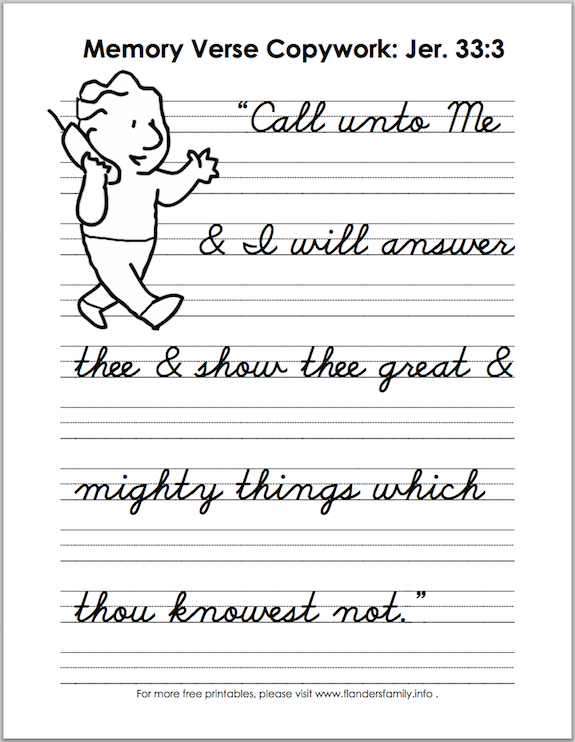 Memory Verse Copywork: Jer. 33:3
“Call unto Me
& I will answer
thee & show thee great &
mighty things which
thou knowest not.”
For more free printables, please visit www.flandersfamily.info .